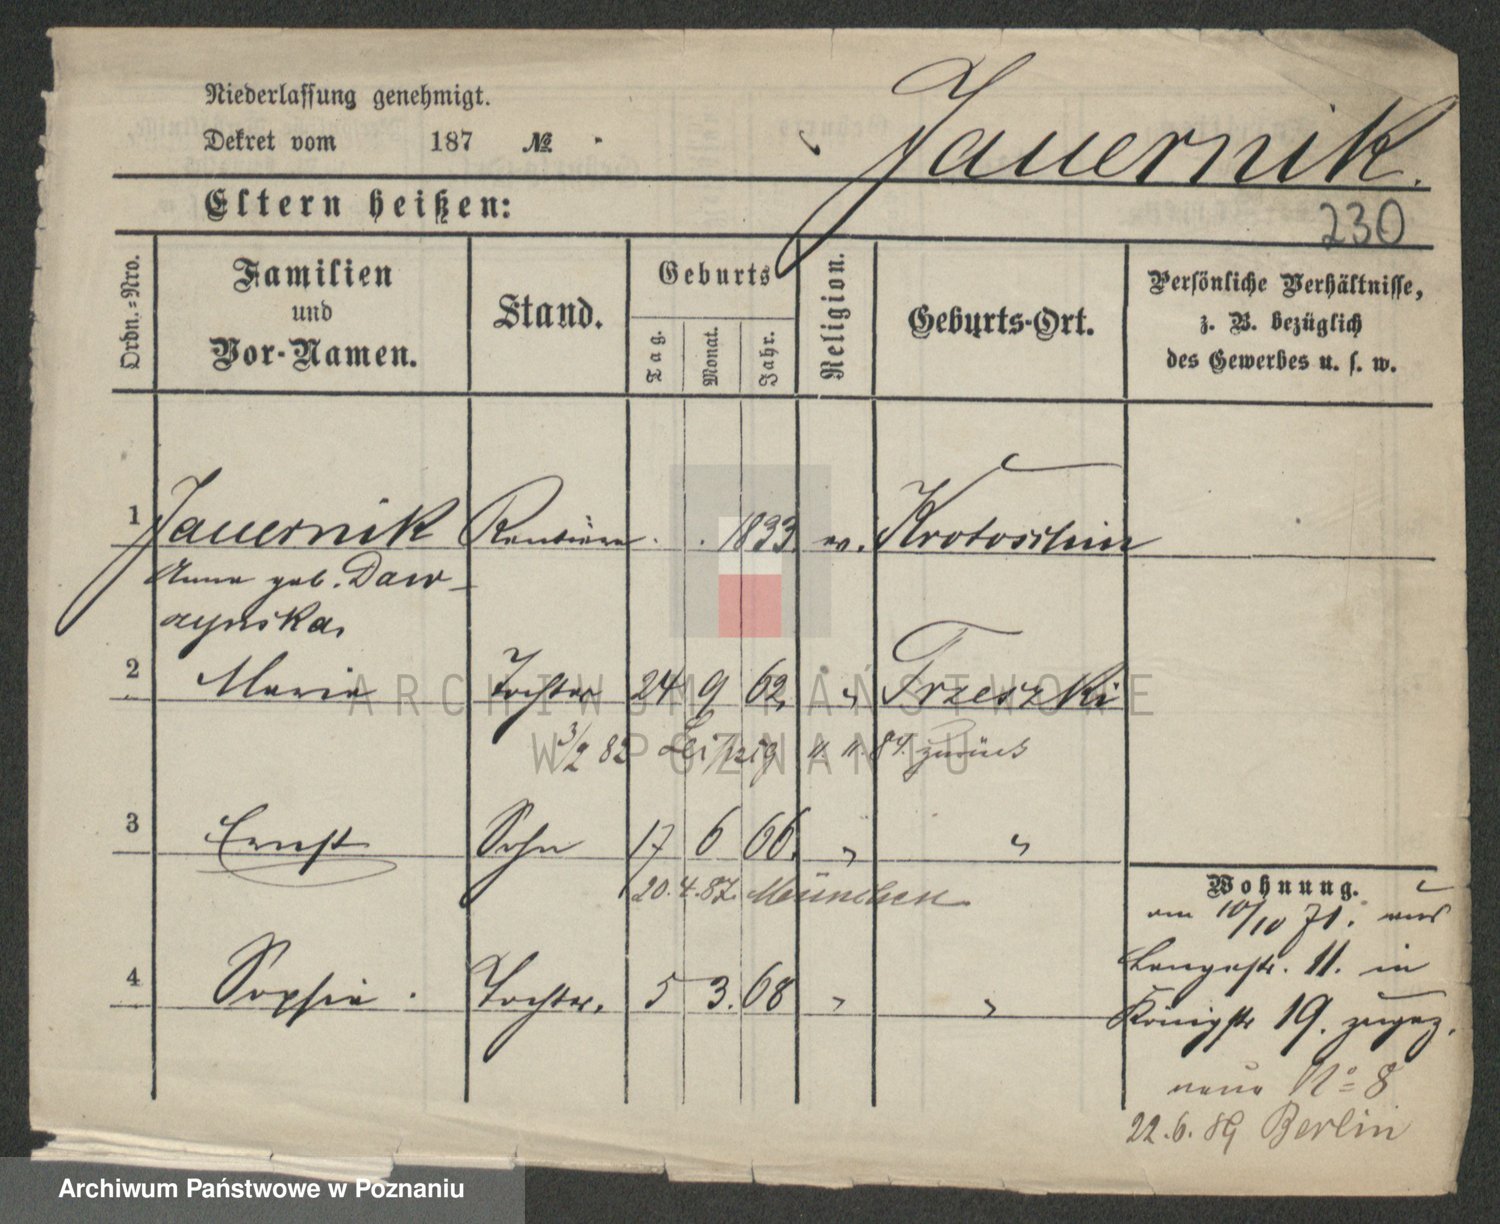 Niederlassung genehmigt.
Dekret vom 187 №
Jauernik.
Eltern heißen:
230
Ordn.=Nro.
Familien
und
Vor-Namen.
Stand.
Geburts
Tag.
Monat.
Jahr.
Religion.
Geburts-Ort.
Persönliche Verhältnisse,
z. B. bezüglich
des Gewerbes u. s. w.
1 Jauernik Rentière . . 1833 ev. Krotoschin
Anna geb. Daw-
zynska.
2 Maria Tochter 24 9 62. " Trzeszki
3/2 82 Leipzig 84. zurück
3 Ernst Sohn 17 6 66. " "
20.4.87. München
4 Sophie. Tochter. 5 3. 68 " "
Wohnung.
am 10/10 71. aus
Langestr. 11. in
Königstr 19. zugez.
neue No 8
22.6.89 Berlin
ARCHIWUM PAŃSTWOWE
W POZNANIU
Archiwum Państwowe w Poznaniu